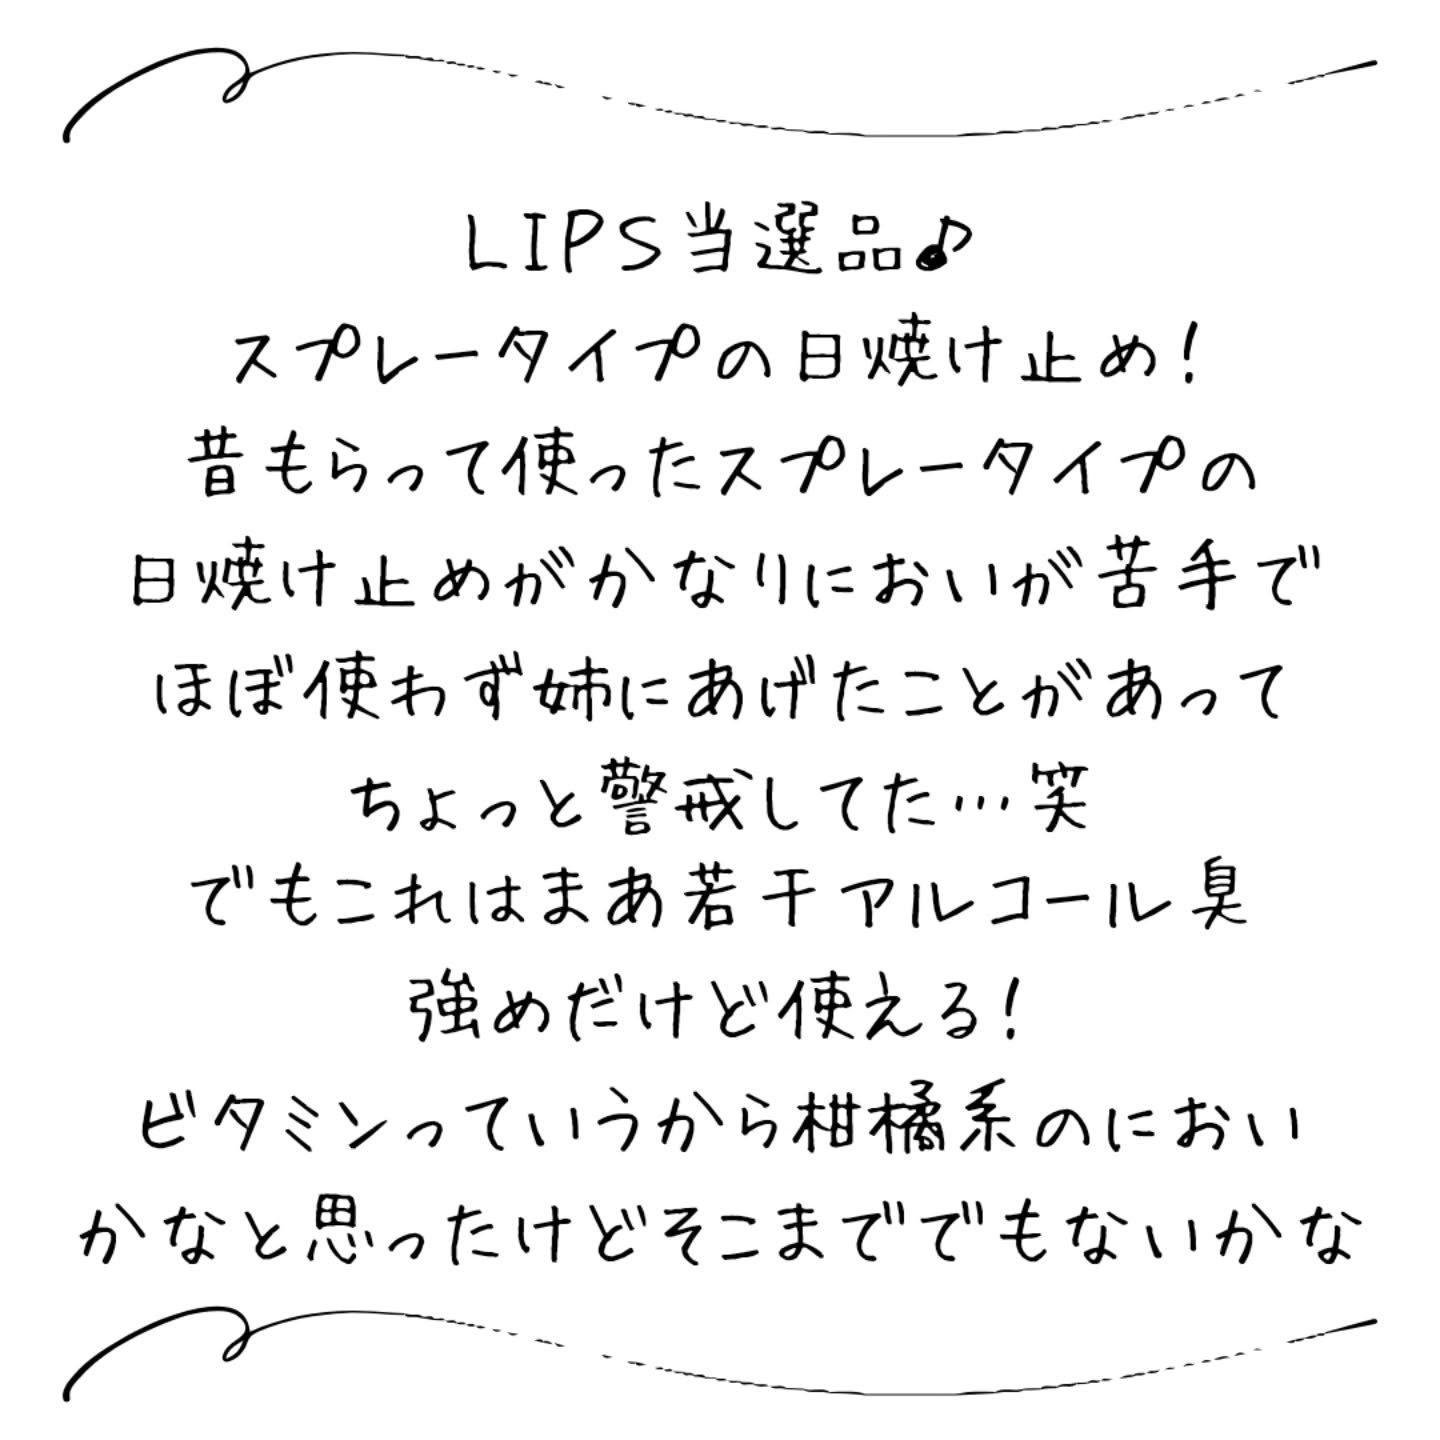 LIPS当選品♪
スプレータイプの日焼け止め!
昔もらって使ったスプレータイプの
日焼け止めがかなりにおいが苦手で
ほぼ使わず姉にあげたことがあって
ちょっと警戒してた…笑
でもこれはまあ若干アルコール臭
強めだけど使える!
ビタミンっていうから柑橘系のにおい
かなと思ったけどそこまででもないかな